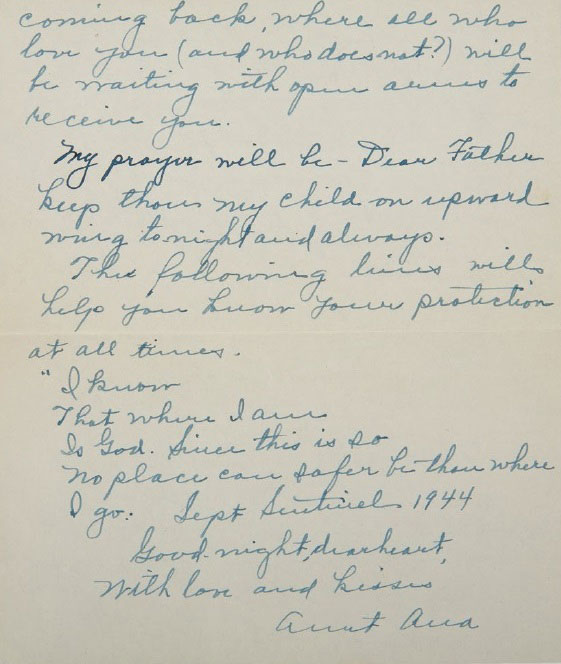 coming back, where all who
love you (and who does not?) will
be waiting with open arms to
receive you.
My prayer will be - Dear Father
keep thou my child on upward
wing tonight and always.
The following lines will
help you know your protection
at all times.
"I know
That where I am
Is God. Since this is so
No place can safer be than where
I go. Sept Sentinel 1944
Good night, dear heart,
With love and kisses
Aunt Ana